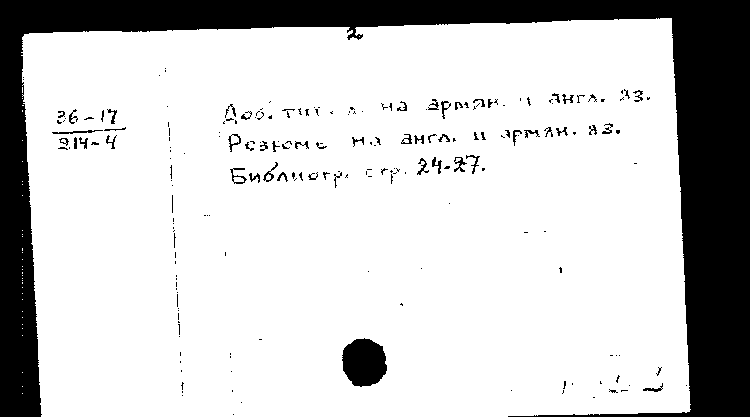 2
36-17
214-4
Доб. тит. л. на армян. и англ. яз.
Резюме на англ. и армян. яз.
Библиогр. стр. 24-27.